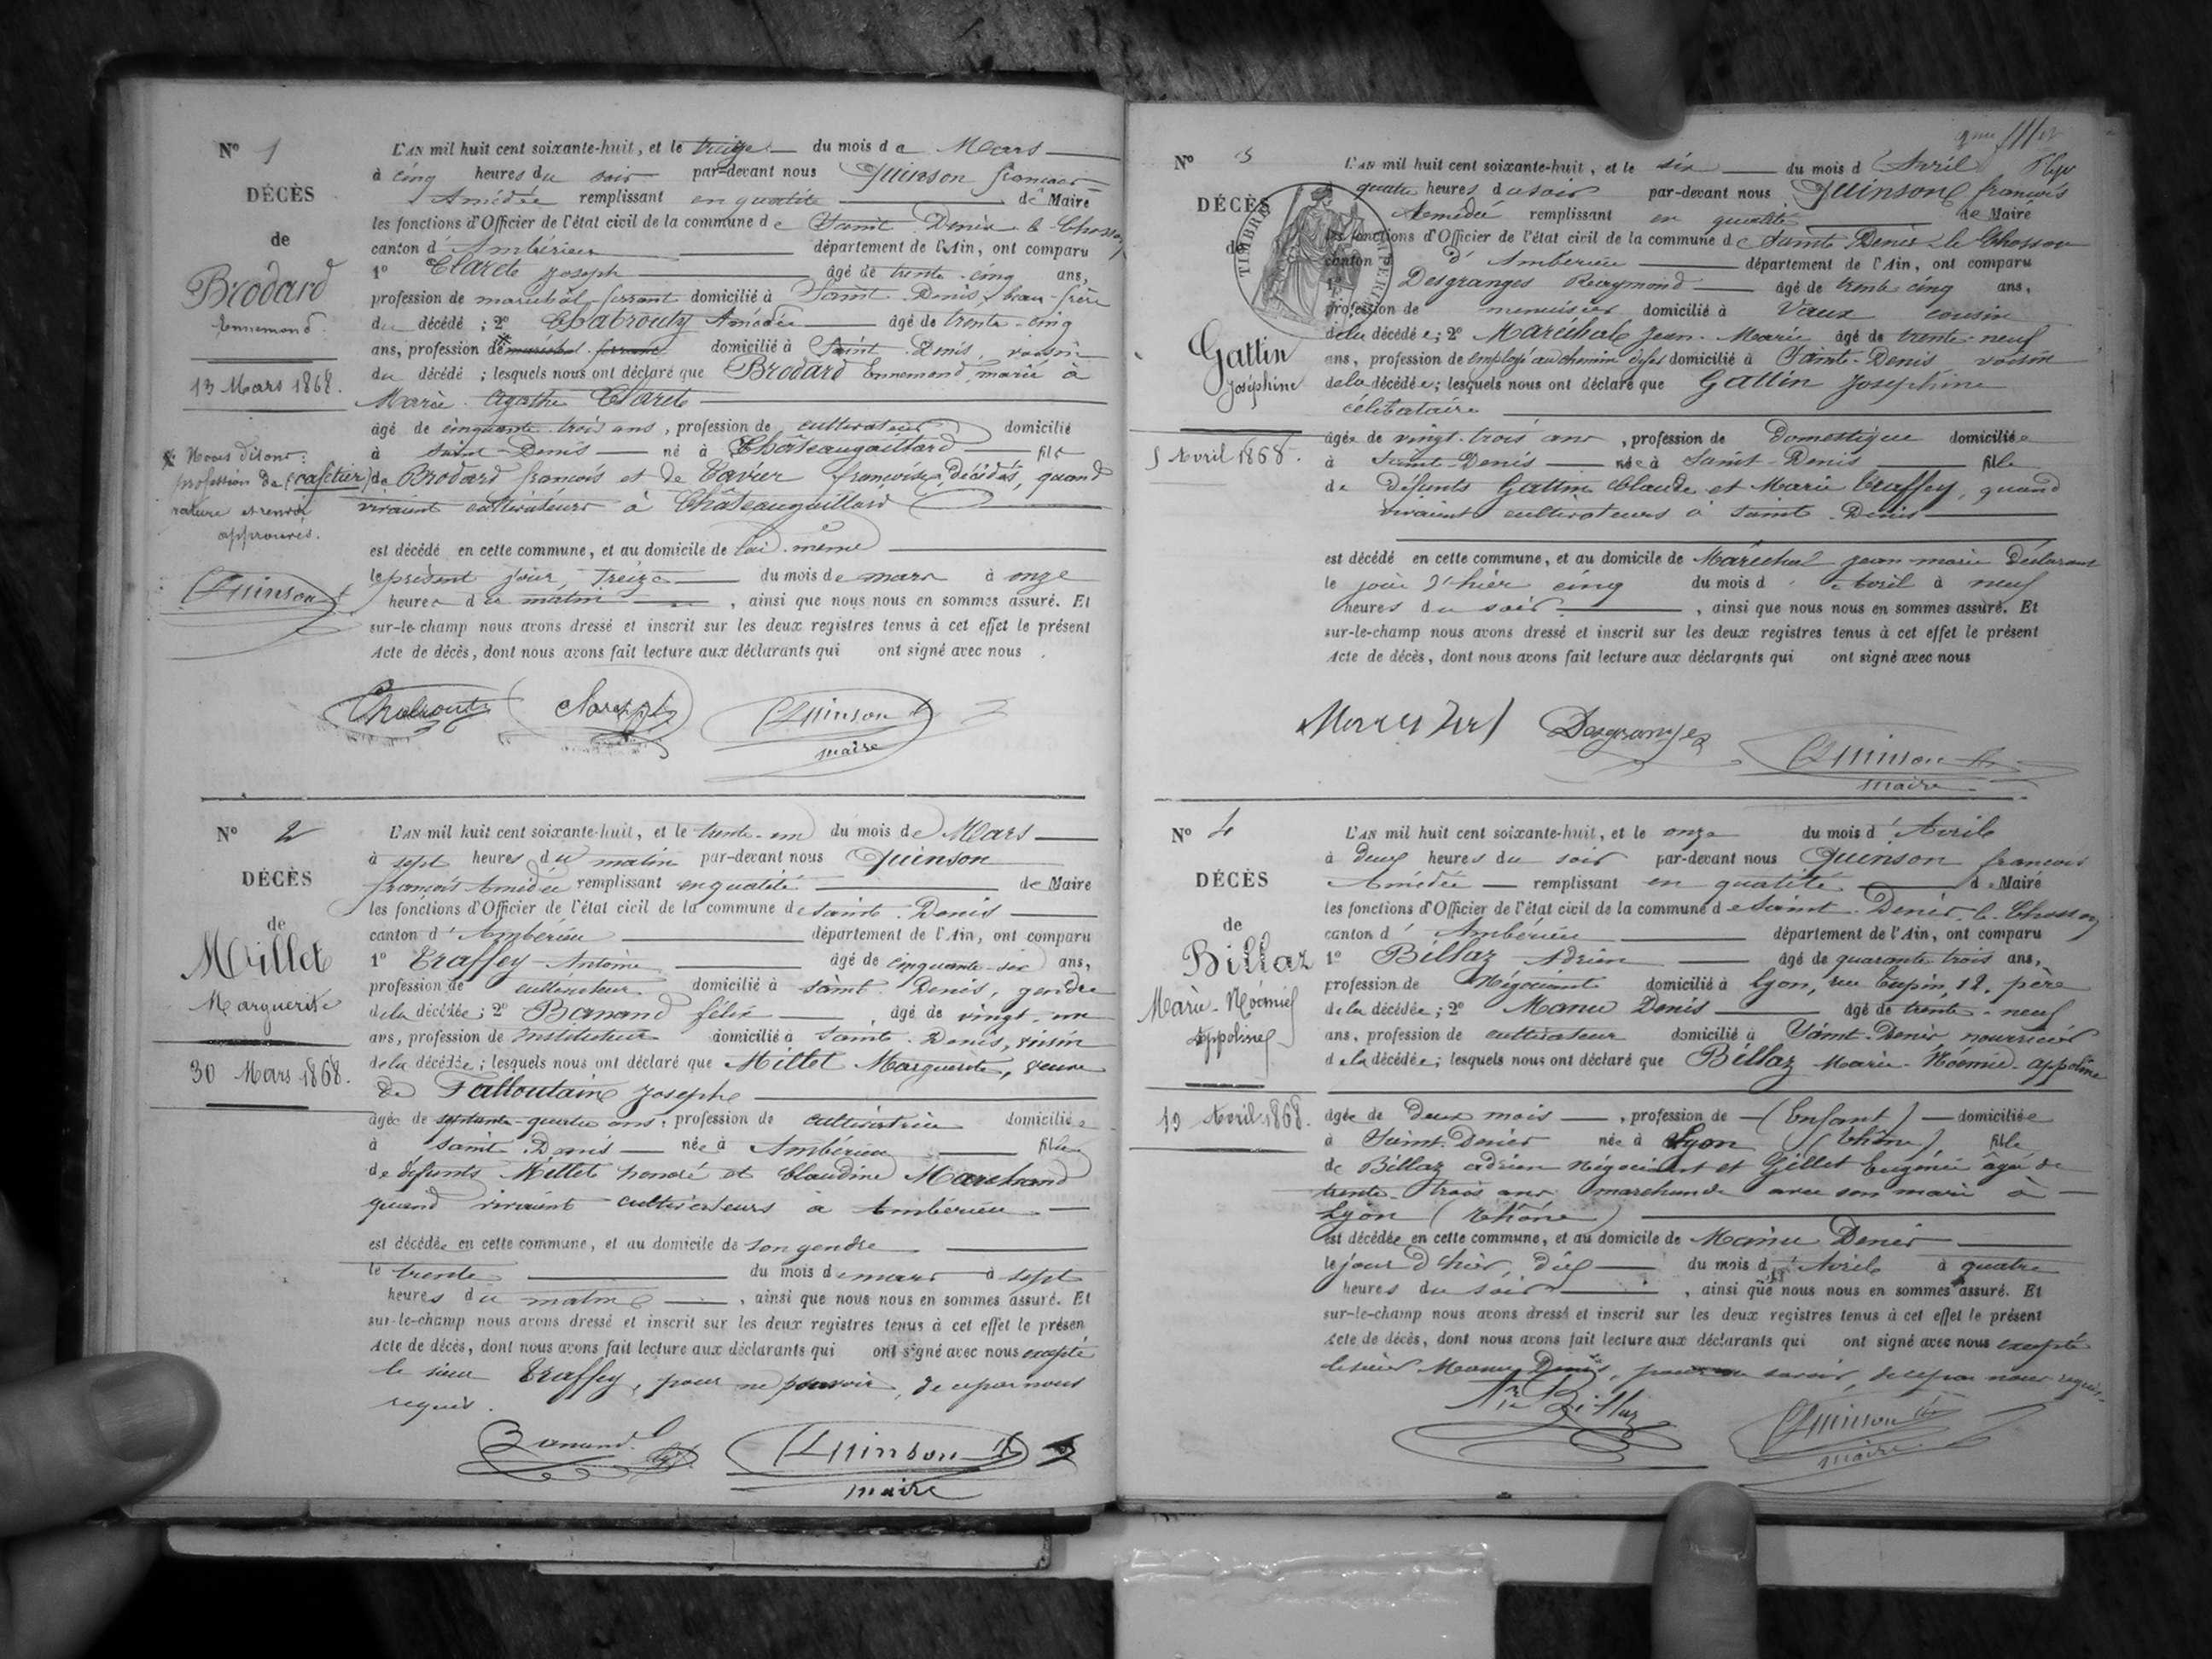 N° 1
DÉCÈS
de
Brodard
Ennemond
13 Mars 1868.
Nous disons:
profession de (cafetier)
rature et renvoi
approuvés.
Quinson
L'AN mil huit cent soixante-huit, et le treize du mois de Mars
à cinq heures du soir par-devant nous Quinson françois
Amédée remplissant en qualité de Maire
les fonctions d'Officier de l'état civil de la commune de Saint Denis le Chosson
canton d'Ambérieu département de l'Ain, ont comparu
1° Claret Joseph âgé de trente-cinq ans,
profession de maréchal ferrant domicilié à Saint Denis, beau-frère
du décédé ; 2° Chabrouty Amédée âgé de trente-cinq
ans, profession de maréchal ferrant domicilié à Saint Denis, voisin
du décédé ; lesquels nous ont déclaré que Brodard Ennemond, marié à
Marie Agathe Claret
âgé de cinquante-trois ans, profession de cultivateur domicilié
à Saint-Denis né à Châteaugaillard fils
de Brodard françois et de Tavier françoise, Décédés, quand
vivaient cultivateurs à Châteaugaillard
est décédé en cette commune, et au domicile de lui-même
le présent jour, Treize du mois de mars à onze
heures du matin, ainsi que nous nous en sommes assuré. Et
sur-le-champ nous avons dressé et inscrit sur les deux registres tenus à cet effet le présent
Acte de décès, dont nous avons fait lecture aux déclarants qui ont signé avec nous.
Quinson
maire
N° 2
DÉCÈS
de
Millet
Marguerite
30 Mars 1868.
L'AN mil huit cent soixante-huit, et le trente-un du mois de Mars
à sept heures du matin par-devant nous Quinson
françois Amédée remplissant en qualité de Maire
les fonctions d'Officier de l'état civil de la commune de Saint Denis
canton d'Ambérieu département de l'Ain, ont comparu
1° Traffey Antoine âgé de cinquante-six ans,
profession de cultivateur domicilié à Saint Denis, gendre
de la décédée ; 2° Banand félix, âgé de vingt-un
ans, profession de Instituteur domicilié à Saint Denis, voisin
de la décédée ; lesquels nous ont déclaré que Millet Marguerite, veuve
de Falloutain Joseph
âgée de septante-quatre ans, profession de cultivatrice domiciliée
à Saint Denis née à Ambérieu fille
de défunts Millet honoré et Claudine Marchand
quand vivaient cultivateurs à Ambérieu
est décédée en cette commune, et au domicile de son gendre
le trente du mois de mars à sept
heures du matin, ainsi que nous nous en sommes assuré. Et
sur-le-champ nous avons dressé et inscrit sur les deux registres tenus à cet effet le présen
Acte de décès, dont nous avons fait lecture aux déclarants qui ont signé avec nous excepté
le sieur Traffey, pour ne pouvoir, de ce par nous
requis.
Banand
Quinson
maire
N° 3
DÉCÈS
de
TIMBRE IMPERIAL
Gattin
Joséphine
5 Avril 1868.
L'AN mil huit cent soixante-huit, et le six du mois d'Avril
quatre heures du soir par-devant nous Quinson françois
Amédée remplissant en qualité de Maire
les fonctions d'Officier de l'état civil de la commune de Saint Denis le Chosson
canton d'Ambérieu département de l'Ain, ont comparu
1° Desgranges Raymond âgé de trente cinq ans,
profession de menuisier domicilié à Vaux cousin
de la décédée ; 2° Maréchal Jean-Marie âgé de trente-neuf
ans, profession de employé au chemin de fer domicilié à Saint-Denis voisin
de la décédée ; lesquels nous ont déclaré que Gattin Joséphine
célibataire
âgée de vingt-trois ans, profession de Domestique domiciliée
à Saint-Denis née à Saint-Denis fille
de Défunts Gattin Claude et Marie Traffey, quand
vivaient cultivateurs à Saint Denis
est décédé en cette commune, et au domicile de Maréchal jean marie Déclarant
le jour d'hier cinq du mois d'Avril à neuf
heures du soir, ainsi que nous nous en sommes assuré. Et
sur-le-champ nous avons dressé et inscrit sur les deux registres tenus à cet effet le présent
Acte de décès, dont nous avons fait lecture aux déclarants qui ont signé avec nous
Desgranges
Quinson
maire
N° 4
DÉCÈS
de
Billaz
Marie-Noémie
Appoline
10 Avril 1868.
L'AN mil huit cent soixante-huit, et le onze du mois d'Avril
à deux heures du soir par-devant nous Quinson françois
Amédée remplissant en qualité de Maire
les fonctions d'Officier de l'état civil de la commune de Saint-Denis-le-Chosson
canton d'Ambérieu département de l'Ain, ont comparu
1° Billaz Adrien âgé de quarante trois ans,
profession de Négociant domicilié à Lyon, rue Tupin, 12, père
de la décédée ; 2° Manu Denis âgé de trente-neuf
ans, profession de cultivateur domicilié à Saint-Denis, nourricier
de la décédée ; lesquels nous ont déclaré que Billaz Marie-Noémie-appoline
âgée de Deux mois, profession de (Enfant) domiciliée
à Saint-Denis née à Lyon (Rhône) fille
de Billaz adrien Négociant et Gillet Eugénie âgée de
trente-trois ans marchande avec son mari à
Lyon (Rhône)
est décédée en cette commune, et au domicile de Manu Denis
le jour d'hier, dix du mois d'Avril à quatre
heures du soir, ainsi que nous nous en sommes assuré. Et
sur-le-champ nous avons dressé et inscrit sur les deux registres tenus à cet effet le présent
Acte de décès, dont nous avons fait lecture aux déclarants qui ont signé avec nous excepté
le sieur Manu Denis, pour ne savoir, de ce par nous requis.
Billaz
Quinson
maire